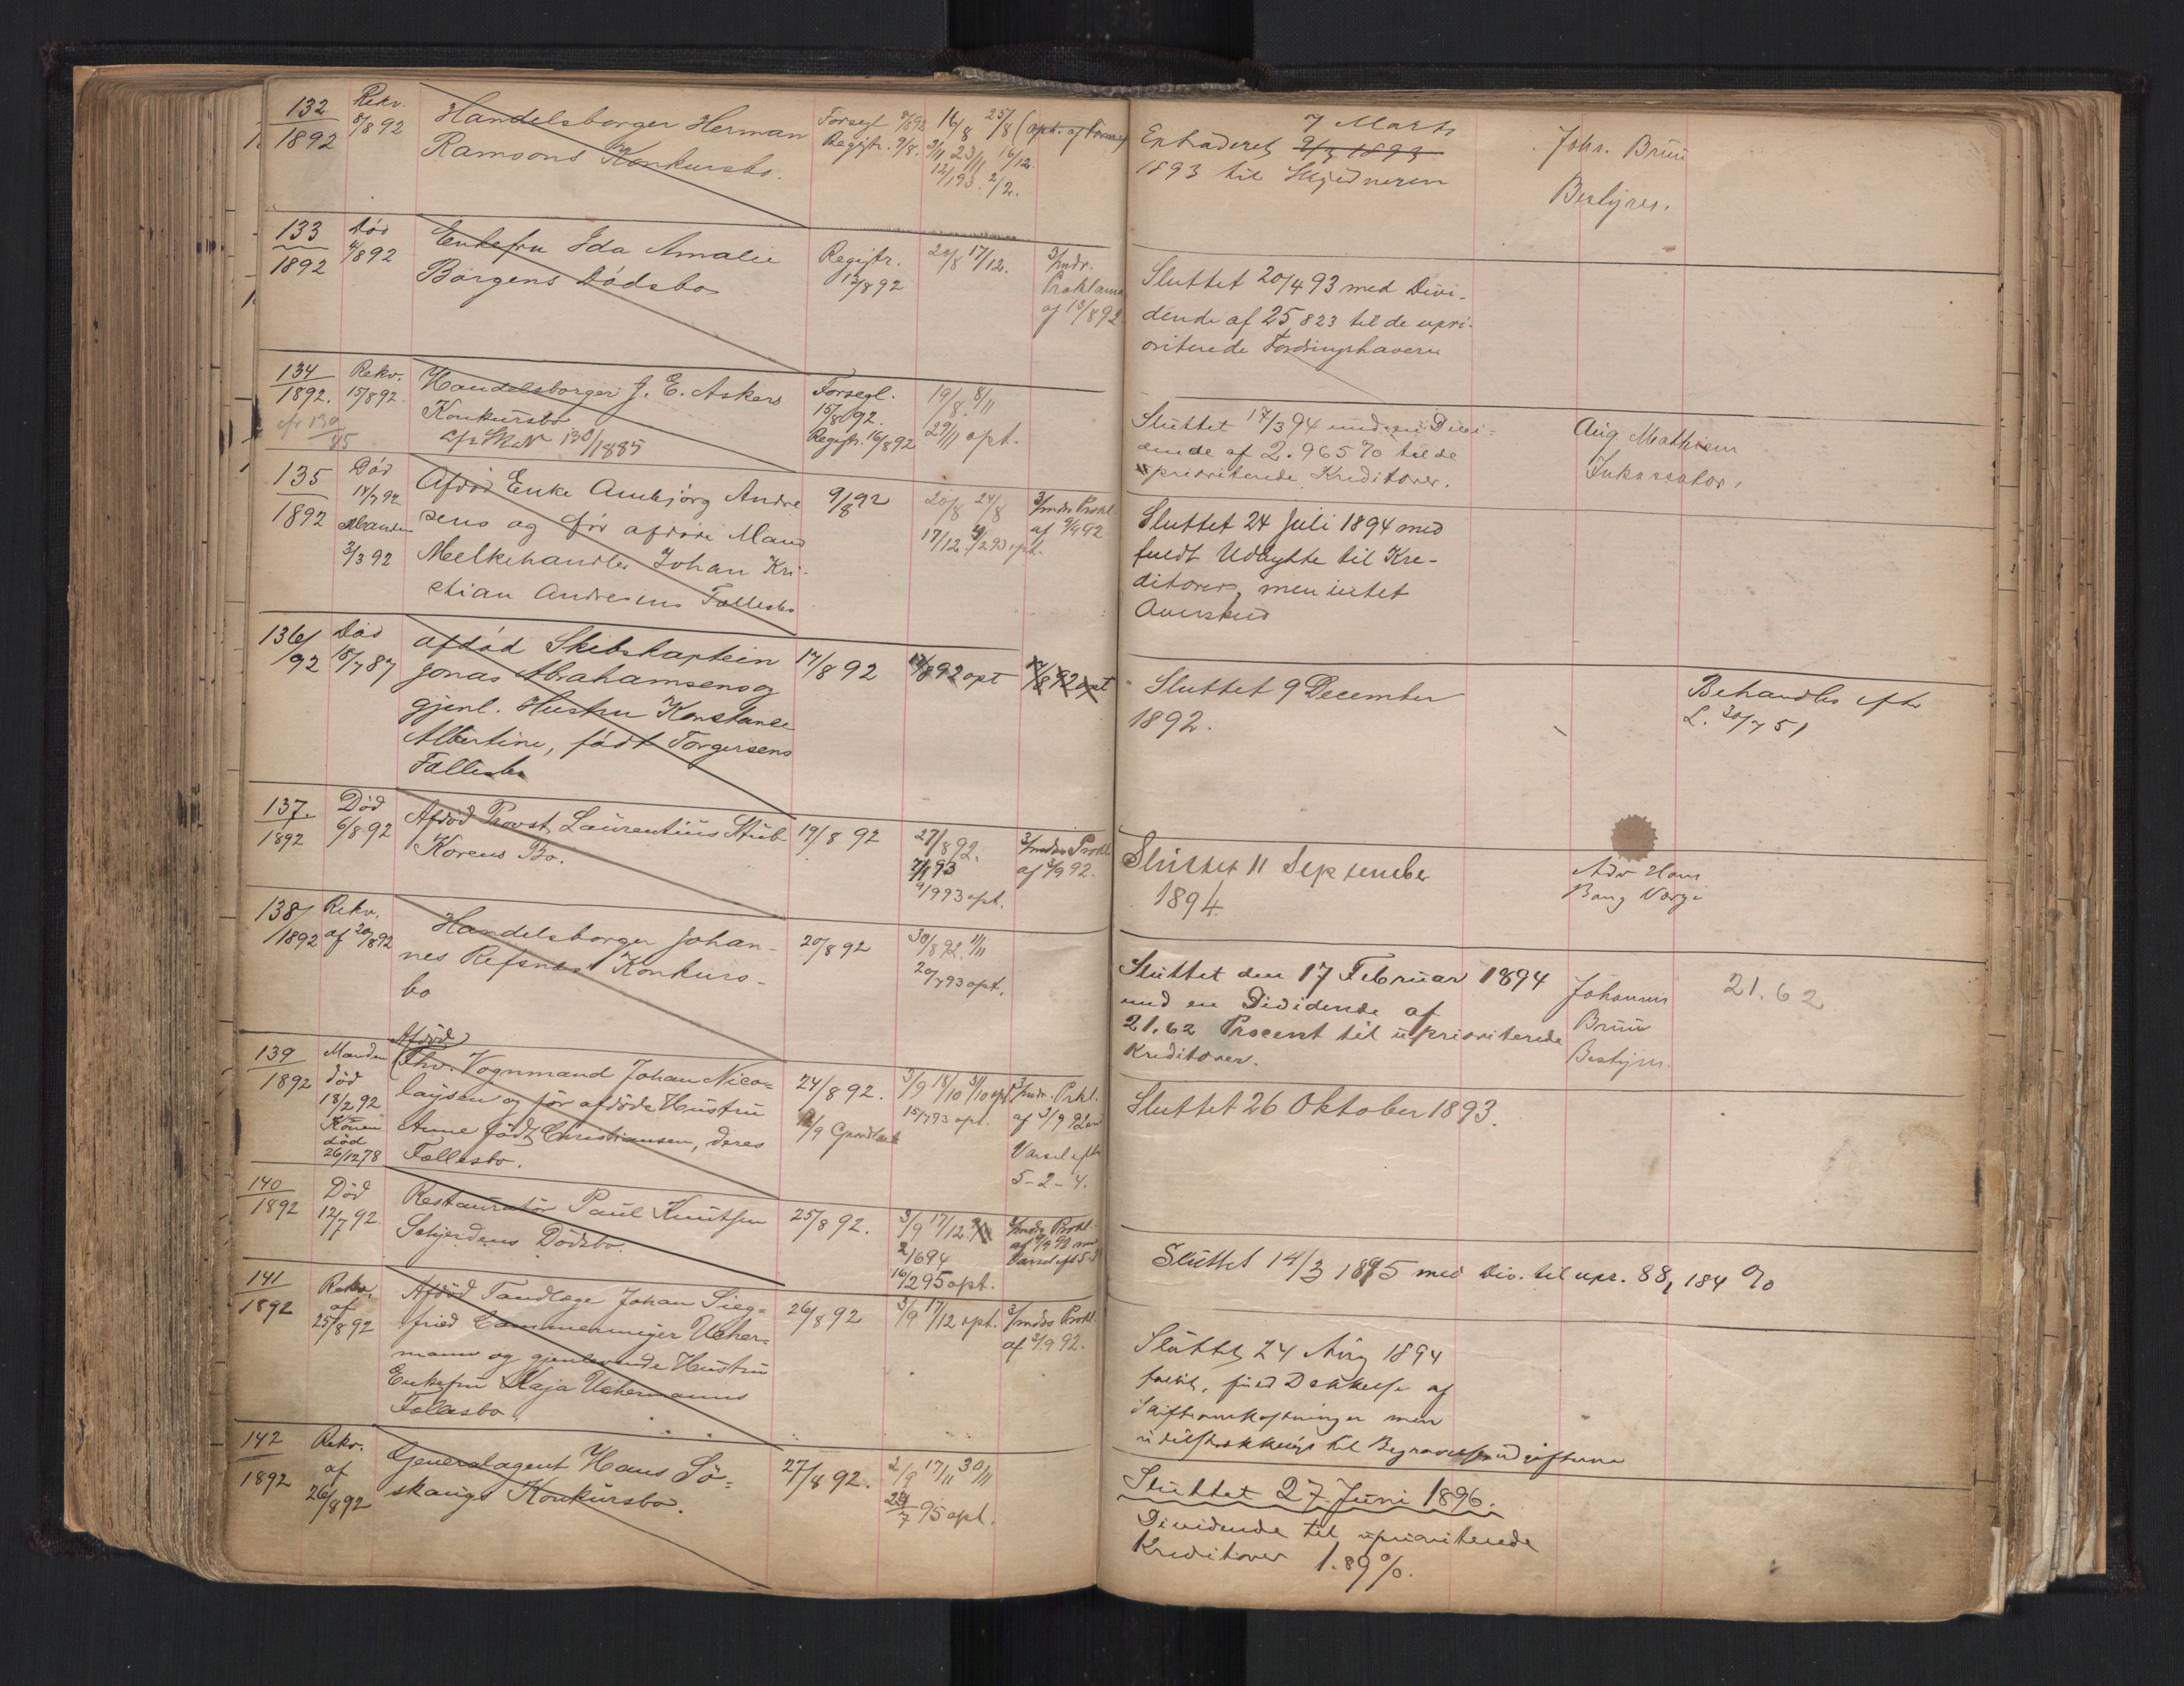 132
1892
Rekv.
8/8 92
Handelsborger Herman
Ramsons Konkursbo.
Forsegl. 8/8 92
Registr. 9/8.
16/8 25/8
3/11 23/11 16/12
12/1 93. 2/2.
7 Marts
Extraderet 9/3 1893
1893 til Skyldneren
Johs. Bruu
Bestyrer.
133
1892
Død
4/8 92
Enkefru Ida Amalie
Børgens Dødsbo
Registr.
13/8 92
20/8 17/12.
3/mdr.
Proklama
af 13/8 92
Sluttet 20/4 93 med Divi-
dende af 25,823 til de upri-
oriterede Fordringshavere
134
1892.
cfr 130/85
Rekv.
15/8 92.
Handelsborger J. E. Askers
Konkursbo
cfr SkN 130/1885
Forsegl.
15/8 92.
Registr. 16/8 92
19/8. 8/11
29/11 opt.
Sluttet 17/3 94 med en Divi-
dende af 2.965 % til de
uprioriterede Kreditorer.
Aug. Mathiesen
Inkassator.
135
1892
Død
14/7 92
Manden
3/3 92
Afdød Enke Ambjørg Andre
sens og før afdøde Mand
Melkehandler Johan Kri-
stian Andresens Fællesbo
9/8 92
20/8 24/8
17/12. 4/2 93 opt.
3/mdrs Prokl
af 2/9 92
Sluttet 24 Juli 1894 med
fuldt Udbytte til Kre-
ditorer, men intet
Overskud
136/
92
Død
18/7 87
Afdød Skibskaptein
Jonas Abrahamsens og
gjenl. Hustru Konstance
Albertine, født Torgersens
Fællesbo
17/8 92
17/8 92 opt
17/8 92 opt
Sluttet 9 December
1892.
Behandles efter
L. 30/7 51
137.
1892
Død
6/8 92
Afdød Provst Laurentius Stub
Korens Bo.
19/8 92
27/8 92.
7/1 93
9/9 93 opt.
3/mdrs Prokl
af 3/9 92.
Sluttet 11 September
1894
Adv Hans
Bang Værge
138/
1892
Rekv.
af 20/8 92
Handelsborger Johan-
nes Refsnæs' Konkurs-
bo
20/8 92
30/8 92. 11/11
20/7 93 opt.
Sluttet den 17 Februar 1894
med en Dividende af
21.62 Procent til uprioriterede
Kreditorer.
Johannes
Bruu
Bestyrer.
21.62
139
1892
Manden
død
18/2 92
Konen
død
26/12 78
Afdød
Fhv. Vognmand Johan Nico=
laysen og før afdøde Hustru
Anne født Christiansen, deres
Fællesbo.
24/8 92.
3/9 18/10 31/10 opt
15/7 93 opt.
3/mdr. Prkl.
af 3/9 92 m
Varsel efter
5-2-4.
Sluttet 26 Oktober 1893.
140
1892
Død
12/7 92.
Restauratør Paul Knutsen
Schjerdens Dødsbo.
25/8 92.
3/9 17/12.
2/6 94
16/2 95 opt.
3/mdr Prokl.
af 3/9 92 med
Sluttet 14/3 1895 med Div. til upr. 88,184 %
141
1892
Rekv.
af
25/8 92
Afdød Tandlæge Johan Sieg=
fried Cammermeyer Ucher=
mann og gjenlevende Hustru
Enkefru Kaja Uchermanns
Fællesbo.
26/8 92
3/9 17/12 opt.
3/mdrs Prokl.
af 3/9 92.
Sluttet 24 Aug 1894
Dækkelse af
Skifteomkostninger men
utilstrækkeligt til Begravelsesudgifterne
142
1892
Rekv.
af
26/8 92
Generalagent Hans Sö=
skaugs Konkursbo.
27/8 92.
2/9 17/11 30/11
29/7 95 opt.
Sluttet 27 Juni 1896.
Dividende til uprioriterede
Kreditorer 1.89 %.